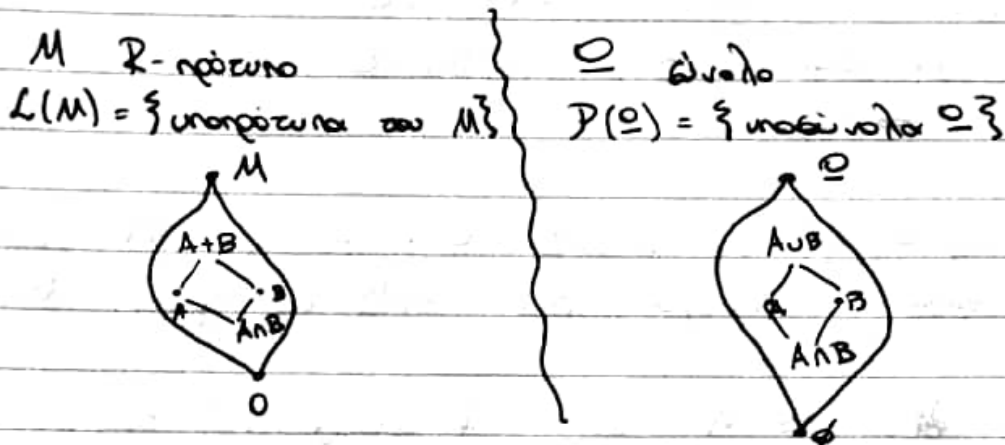 M R-πρότυπο
L(M) = {υποπρότυπα του M}
M
A+B
A B
A∩B
0
Ω σύνολο
P(Ω) = {υποσύνολα Ω}
Ω
A∪B
A B
A∩B
∅